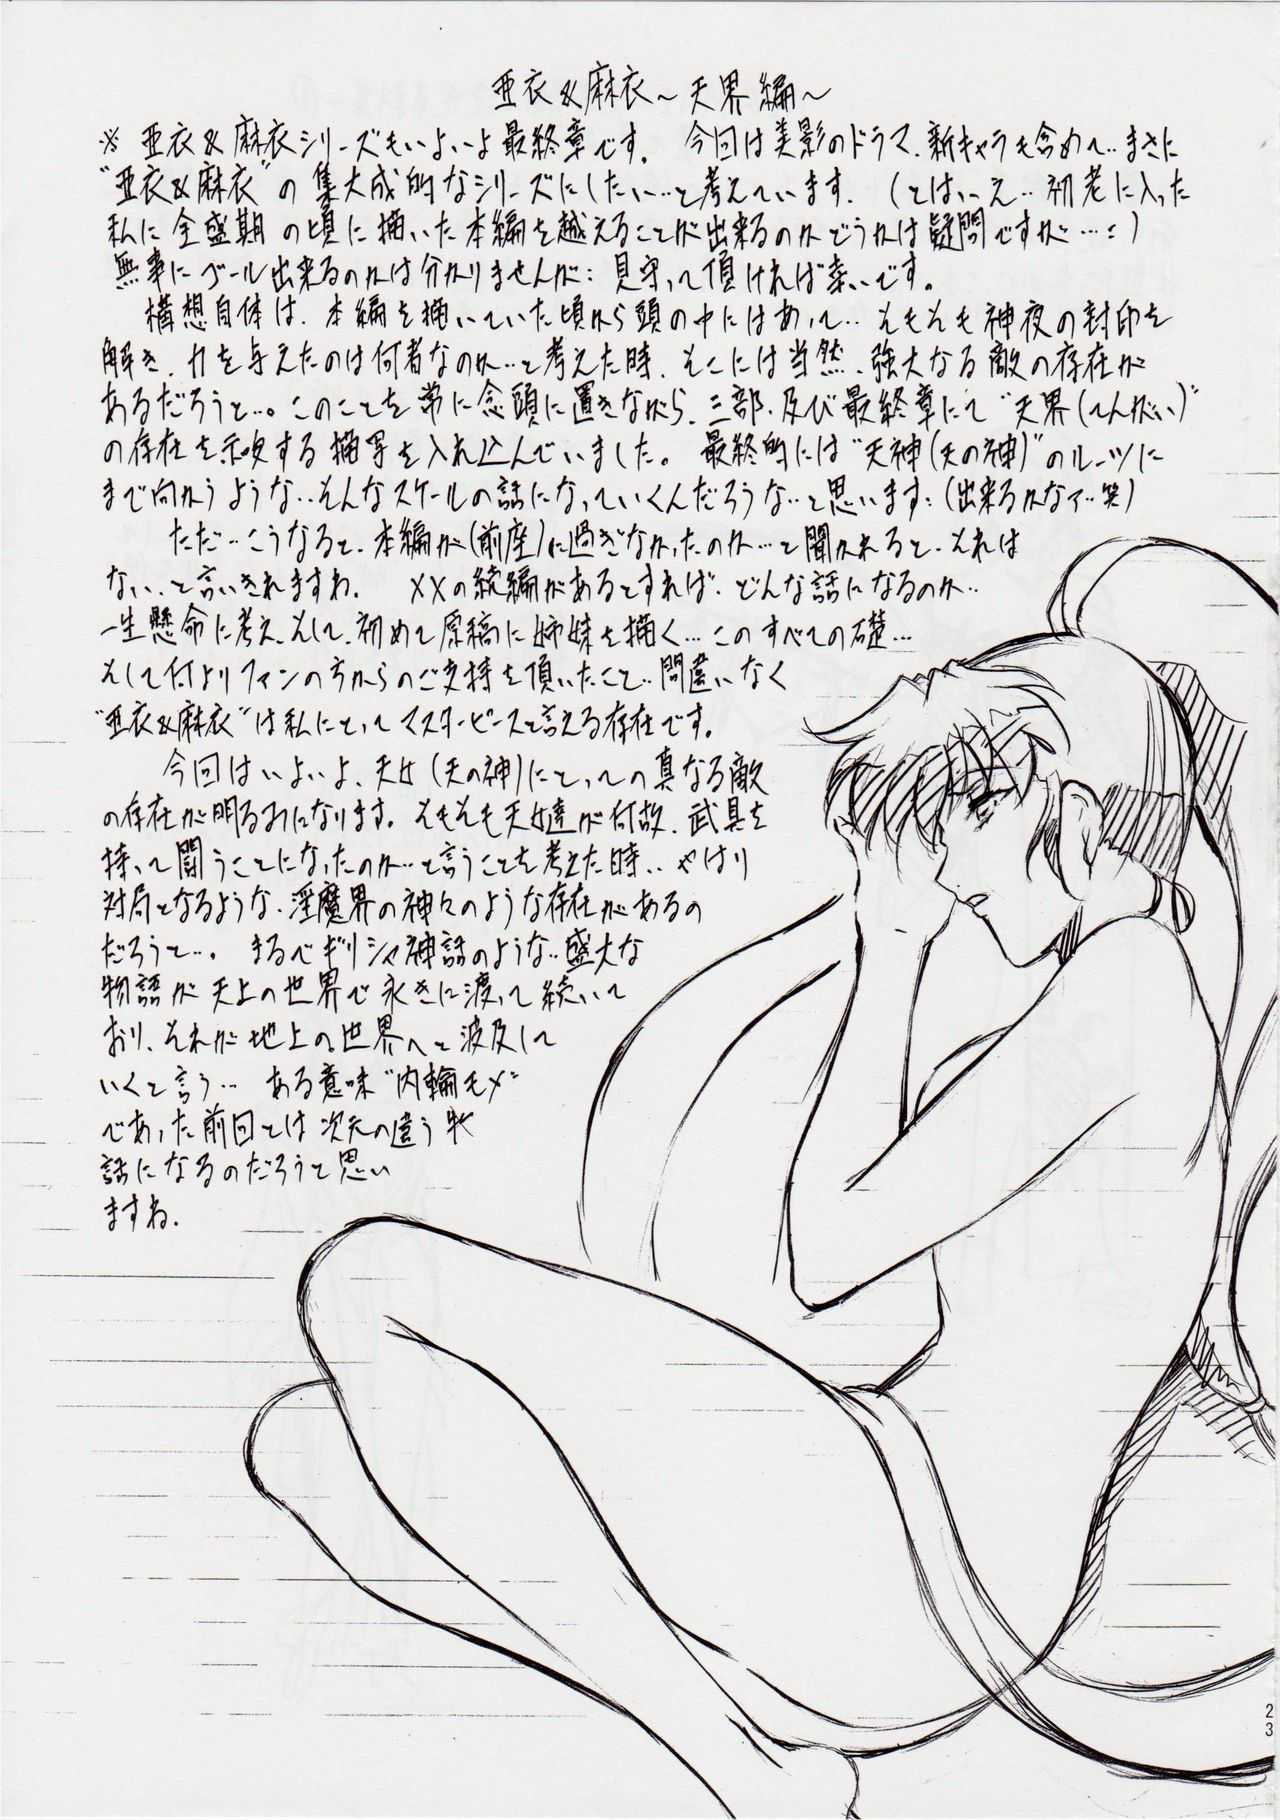 亜衣&麻衣～天界編～
※ 亜衣&麻衣シリーズもいよいよ最終章です。 今回は美影のドラマ、新キャラも含めて‥まさに
"亜衣&麻衣"の集大成的なシリーズにしたい…と考えています。(とはいえ‥初老に入った
私に全盛期の頃に描いた本編を越えることが出来るのかどうかは疑問ですが…:)
無事にゴール出来るのかは分かりませんが: 見守って頂ければ幸いです。
構想自体は、本編を描いていた頃から頭の中にはあって‥そもそも神夜の封印を
解き、力を与えたのは何者なのか…と考えた時、そこには当然、強大なる敵の存在が
あるだろうと…。このことを常に念頭に置きながら、三部、及び最終章にて"天界(てんがい)"
の存在を示唆する描写を入れ込んでいました。 最終的には"天神(天の神)"のルーツに
まで向かうような‥そんなスケールの話になっていくんだろうな‥と思います:(出来るかなァ‥笑)
ただ‥こうなると、本編が(前座)に過ぎなかったのか…と聞かれると、それは
ない、と言いきれますね。 XXの続編があるとすれば、どんな話になるのか‥
一生懸命に考え、そして、初めて原稿に姉妹を描く…このすべての礎…
そして何よりファンの方からのご支持を頂いたこと‥間違いなく
"亜衣&麻衣"は私にとってマスターピースと言える存在です。
今回はいよいよ、天女(天の神)にとっての真なる敵
の存在が明るみになります。そもそも天女達が何故、武具を
持って闘うことになったのか…と言うことを考えた時‥やはり
対局となるような、淫魔界の神々のような存在があるの
だろうと…。 まるでギリシャ神話のような‥盛大な
物語が天上の世界で永きに渡って続いて
おり、それが地上の世界へと波及して
いくと言う‥ ある意味"内輪モメ"
であった前回とは次元の違うお
話になるのだろうと思い
ますね。
23